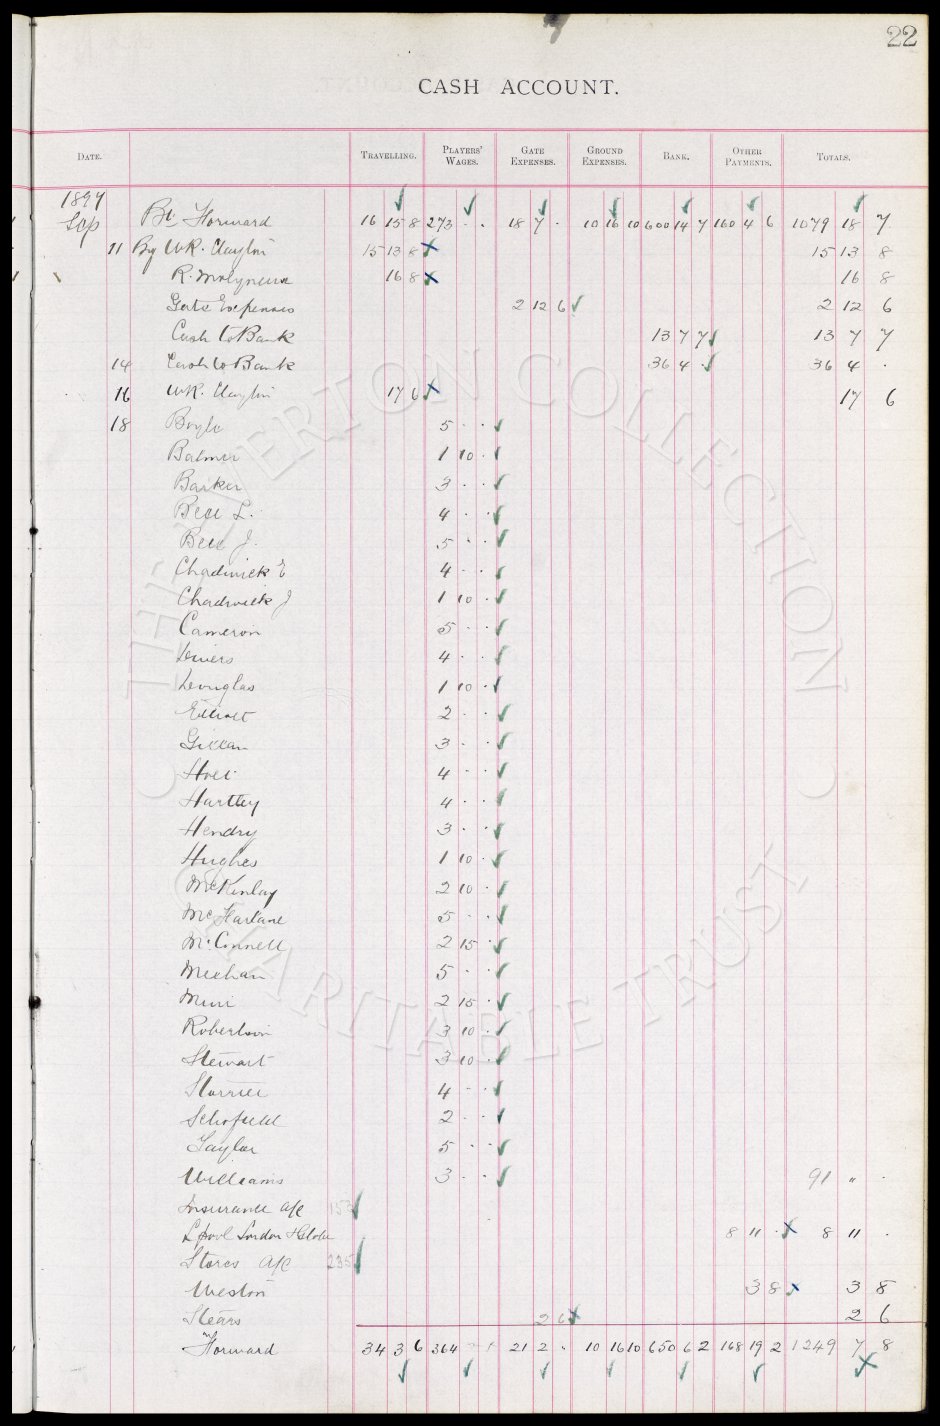 22
CASH ACCOUNT.
DATE. TRAVELLING. PLAYERS' WAGES. GATE EXPENSES. GROUND EXPENSES. BANK. OTHER PAYMENTS. TOTALS.
1897
Sep Bt Forward 16 15 8 273 . . 18 7 . 10 16 10 600 14 7 160 4 6 1079 18 7
11 By W.R. Clayton 15 13 8 15 13 8
R. Molyneux 16 8 16 8
Gate Expenses 2 12 6 2 12 6
Cash to Bank 13 7 7 13 7 7
14 Cash to Bank 36 4 . 36 4 .
16 W.R. Clayton 17 6 17 6
18 Boyle 5 . .
Balmer 1 10 .
Barker 3 . .
Bell L. 4 . .
Bell J. 5 . .
Chadwick E 4 . .
Chadwick J 1 10 .
Cameron 5 . .
Divers 4 . .
Douglas 1 10 .
Elliott 2 . .
Gillan 3 . .
Holt 4 . .
Hartley 4 . .
Hendry 3 . .
Hughes 1 10 .
McKinlay 2 10 .
McFarlane 5 . .
McConnell 2 15 .
Meehan 5 . .
Muir 2 15 .
Robertson 3 10 .
Stewart 3 10 .
Storrier 4 . .
Schofield 2 . .
Taylor 5 . .
Williams 3 . . 91 " .
Insurance a/c 153
L'pool London & Globe 8 11 . 8 11 .
Stores a/c 235
Weston 3 8 3 8
Stears 2 6 2 6
Forward 34 3 6 364 21 2 . 10 16 10 650 6 2 168 19 2 1249 7 8
THE EVERTON COLLECTION
CHARITABLE TRUST